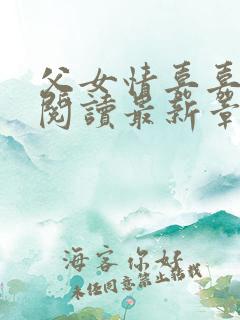 父女情喜喜
閱讀最新章
海客你好
未经同意禁止转载